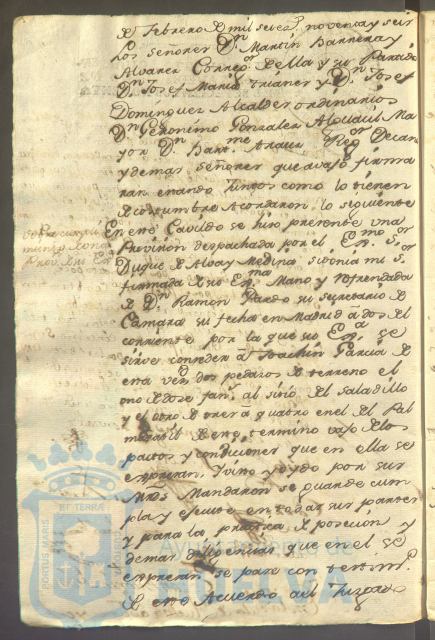 de Febrero de mil setec.s noventa y seis
los señores Dn Martin Barrera y
Alvarez Correg.or de ella y su Partido
Dn Josef Maria Trianes y Dn Josef
Dominguez Alcaldes ordinarios
Dn Geronimo Gonzalez Alguacil Ma
yor Dn Bart.me Reg.or Decano
y demas señores que avajo firma
ran estando Juntos como lo tienen
de costumbre Acordaron lo siguiente
En este Cavildo se hiso presente una
Provision despachada por el Ex.mo S.or
Duque de Alva y Medina sidonia mi S.r
firmada de su Ex.ma Mano y refrendada
de Dn Ramon Pardo su secretario de
Camara su fecha en Madrid a dos del
corriente por la que su Ex.a se
sirve conceder a Joachin Garcia de
esta vecd dos pedazos de terreno el
uno de dose fan.s al sitio del saladillo
y el otro de tres a quatro en el del Pal
de este termino vajo de los
pactos y condiciones que en ella se
expresan, y visto y oydo por sus
Mrds Mandaron se guarde cum
pla y efecute en todas sus partes
y para la practica de posecion y
demas diligencias que en el se
expresan se pase con testim.o
de este Acuerdo al Juzgado
Provon de su Ex.a
PORTUS MARIS ET TERRÆ CUSTODIA
Ayuntamiento de
HUELVA